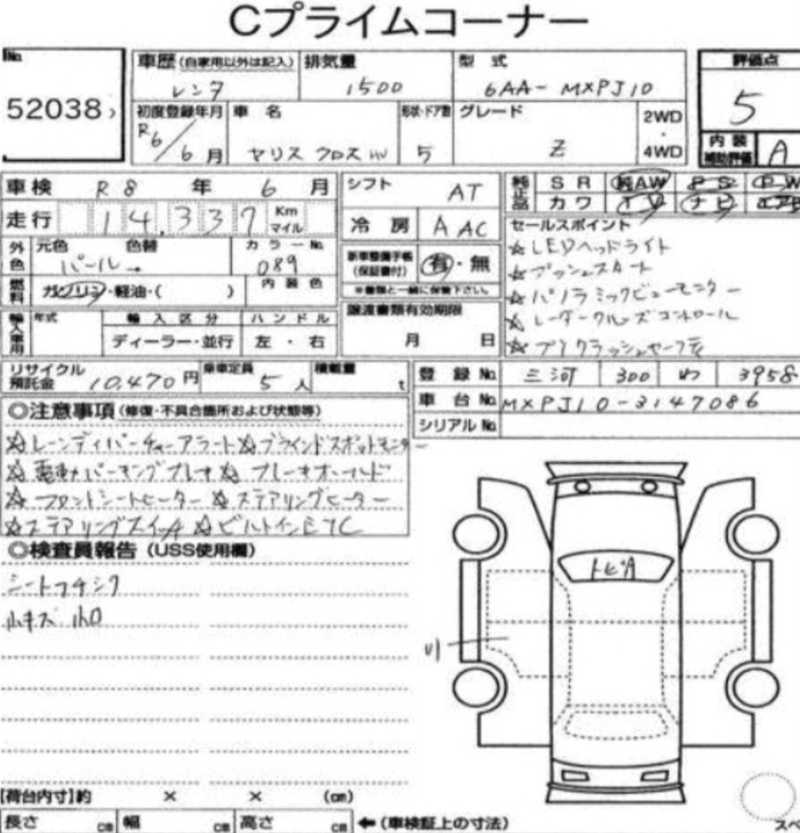 Cプライムコーナー
No.
52038
車歴 (自家用以外は記入) レンタ
排気量 1500
型式 6AA-MXPJ10
評価点 5
初度登録年月 R6/6月
車名 ヤリス クロス HV
形状・ドア数 5
グレード Z
2WD・4WD
内装補助評価 A
車検 R8年 6月
シフト AT
純正品 SR 純AW PS PW
カワ TV ナビ エアB
走行 14,337 Km マイル
冷房 AAC
セールスポイント
外色 元色 パール 色替
カラーNo. 089
新車整備手帳(保証書付) 有・無
※書類と一緒に保管下さい。
☆LEDヘッドライト
☆プッシュスタート
燃料 ガソリン・軽油・( )
内装色
☆パノラミックビューモニター
輸入車用 年式 輸入区分 ハンドル
ディーラー・並行 左・右
譲渡書類有効期限
月 日
☆レーダークルーズコントロール
☆プリクラッシュセーフティ
リサイクル預託金 10,470円
乗車定員 5人
積載量 t
登録No. 三河 300 わ 3958
車台No. MXPJ10-3147086
シリアルNo.
◎注意事項 (修復・不具合箇所および状態等)
☆レーンディパーチャーアラート☆ブラインドスポットモニター
☆電動パーキングブレーキ ☆ブレーキホールド
☆フロントシートヒーター ☆ステアリングヒーター
☆ステアリングスイッチ ☆ビルトインETC
◎検査員報告 (USS使用欄)
シート
小キズ 小凹
トビA
U1
【荷台内寸】約 × × (cm)
長さ cm 幅 cm 高さ cm ←(車検証上の寸法)
スペ